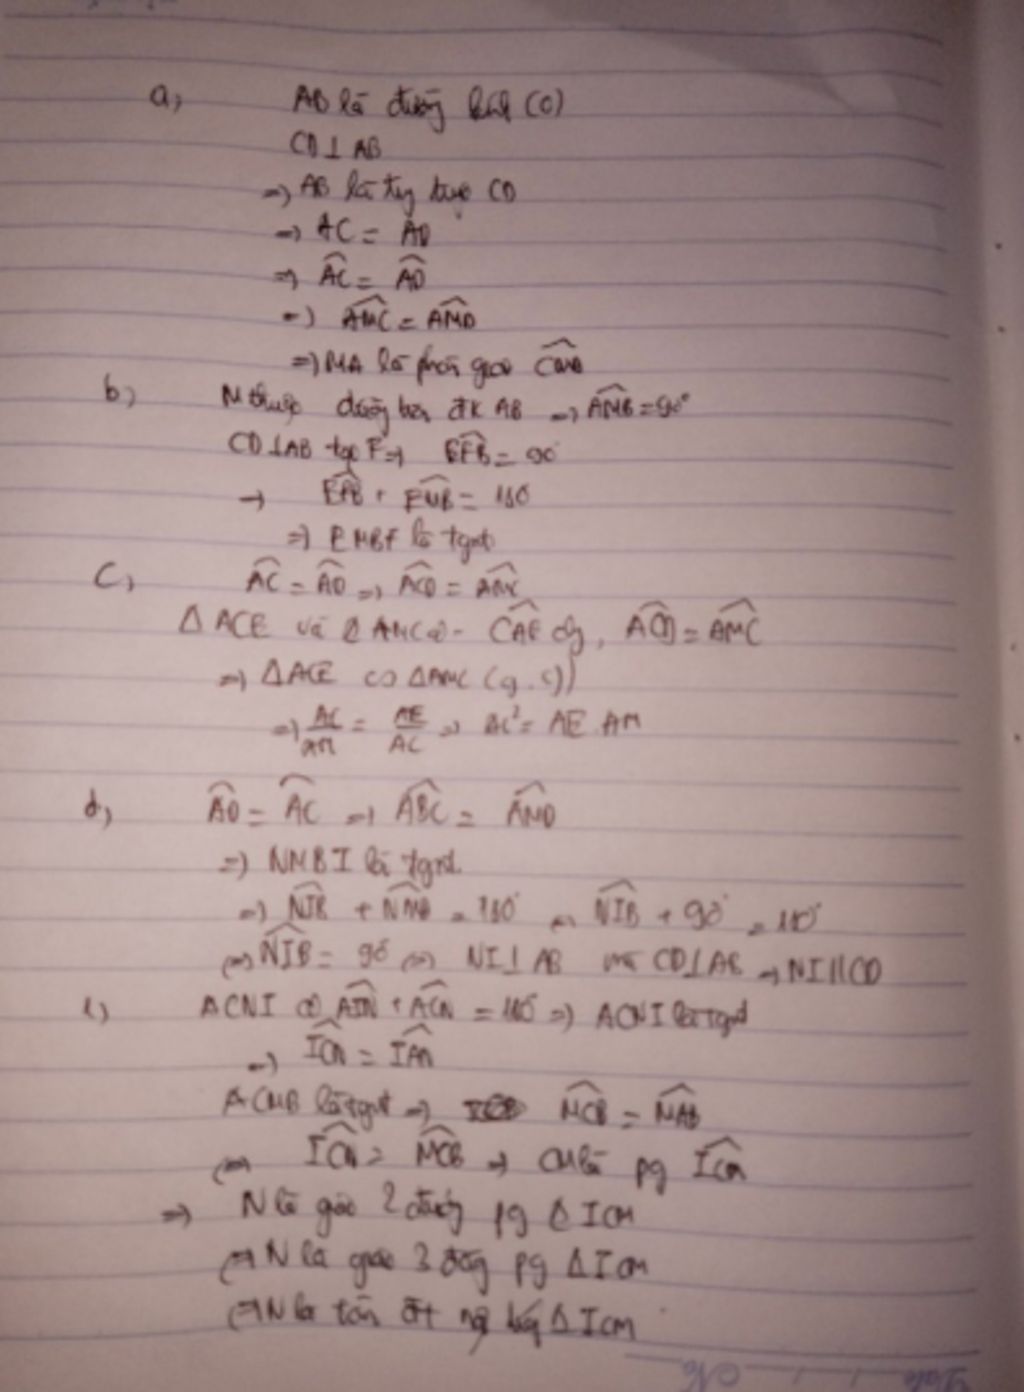 a, AB là đường kính (O)
CD⊥AB
=> AB là trực CD
=> AC = AD
=> AC = AD
=> AMC = AMD
=> MA là phân giác CMD
b) M thuộc đường tròn đk AB => AMB = 90°
CD⊥AB tại F => EFB = 90°
→ EFB + EMB = 180
=> EMBF là tgnt
C, AC = AD => ACD = AMC
Δ ACE và Δ AMC có - CAE chung, ACD = AMC
=> ΔACE ∽ ΔAMC (g.g)
=> AC/AM = AE/AC => AC² = AE.AM
d, AD = AC => ABC = AMD
=> NMBI là tgnt
=> NIB + NMB = 180° => NIB + 90° = 180°
=> NIB = 90 => NI⊥AB mà CD⊥AB → NI//CD
ACNI có AIN + ACN = 180° => ACNI là tgnt
=> ICN = IAN
ACMB là tgnt => MCB = MAB
=> ICN = MCB => CN là pg ICM
=> N là giao 2 đường pg Δ ICM
=> N là giao 3 đường pg Δ ICM
=> N là tâm đt nội tiếp Δ ICM
No
Date / /